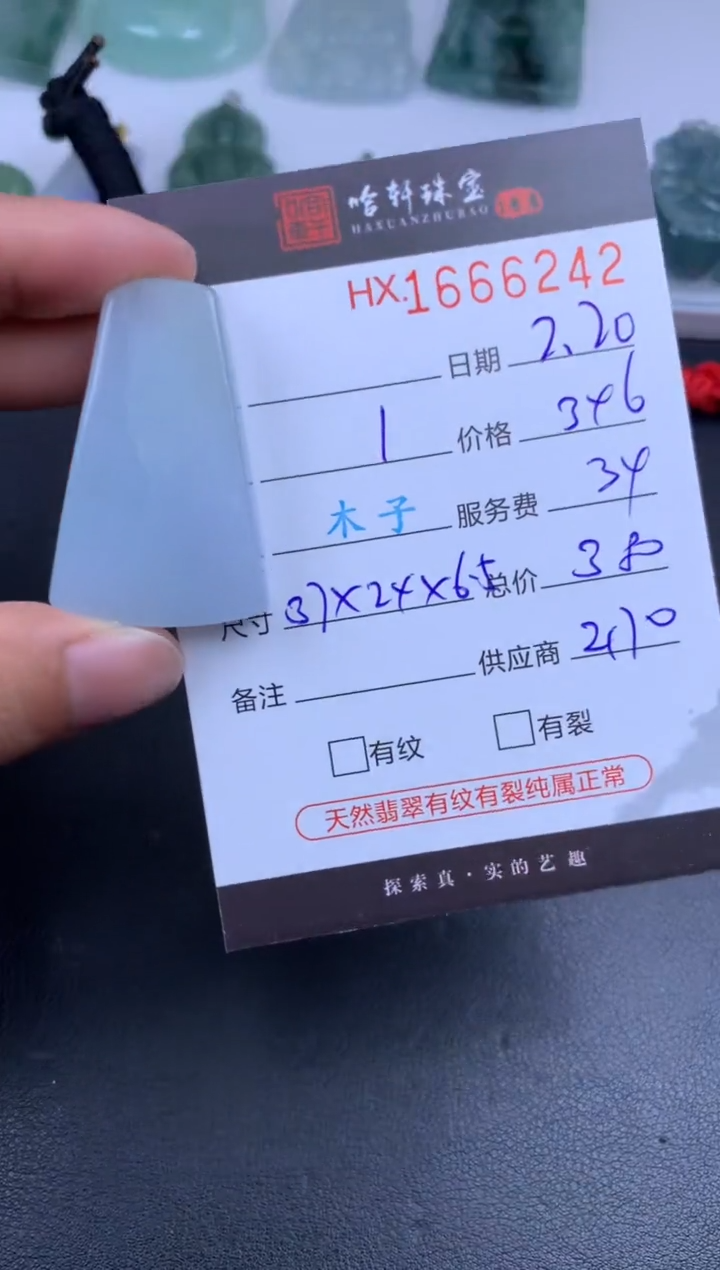 哈轩珠宝
HAXUANZHUBAO
HX.1666242
日期 2.20
1 价格 346
木子 服务费 34
尺寸 37×24×6.5 总价 380
备注 供应商
有纹 有裂
天然翡翠有纹有裂纯属正常
探索真·实的艺趣